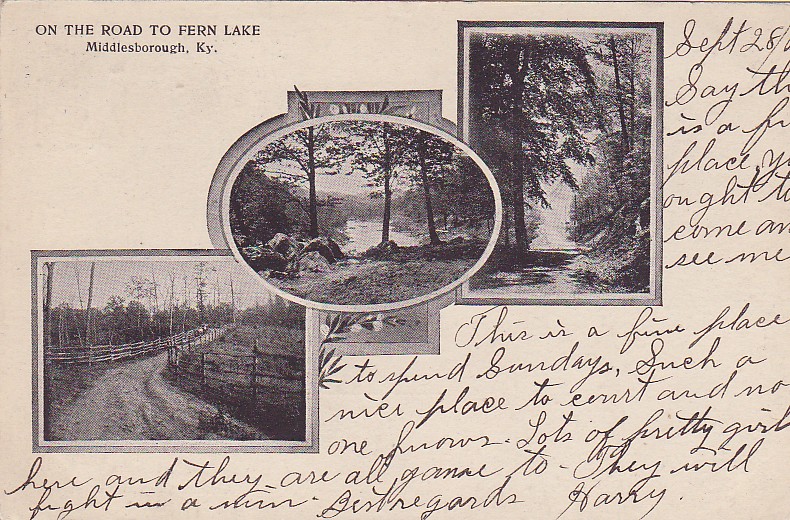 ON THE ROAD TO FERN LAKE
Middlesborough, Ky.
Sept 28/
Say th
is a fi
place, y
ought t
come an
see me
This is a fine place
to spend Sundays, Such a
nice place to court and no
one knows. Lots of pretty girl
here and they are all game to. They will
fight in a min. Best regards Harry.